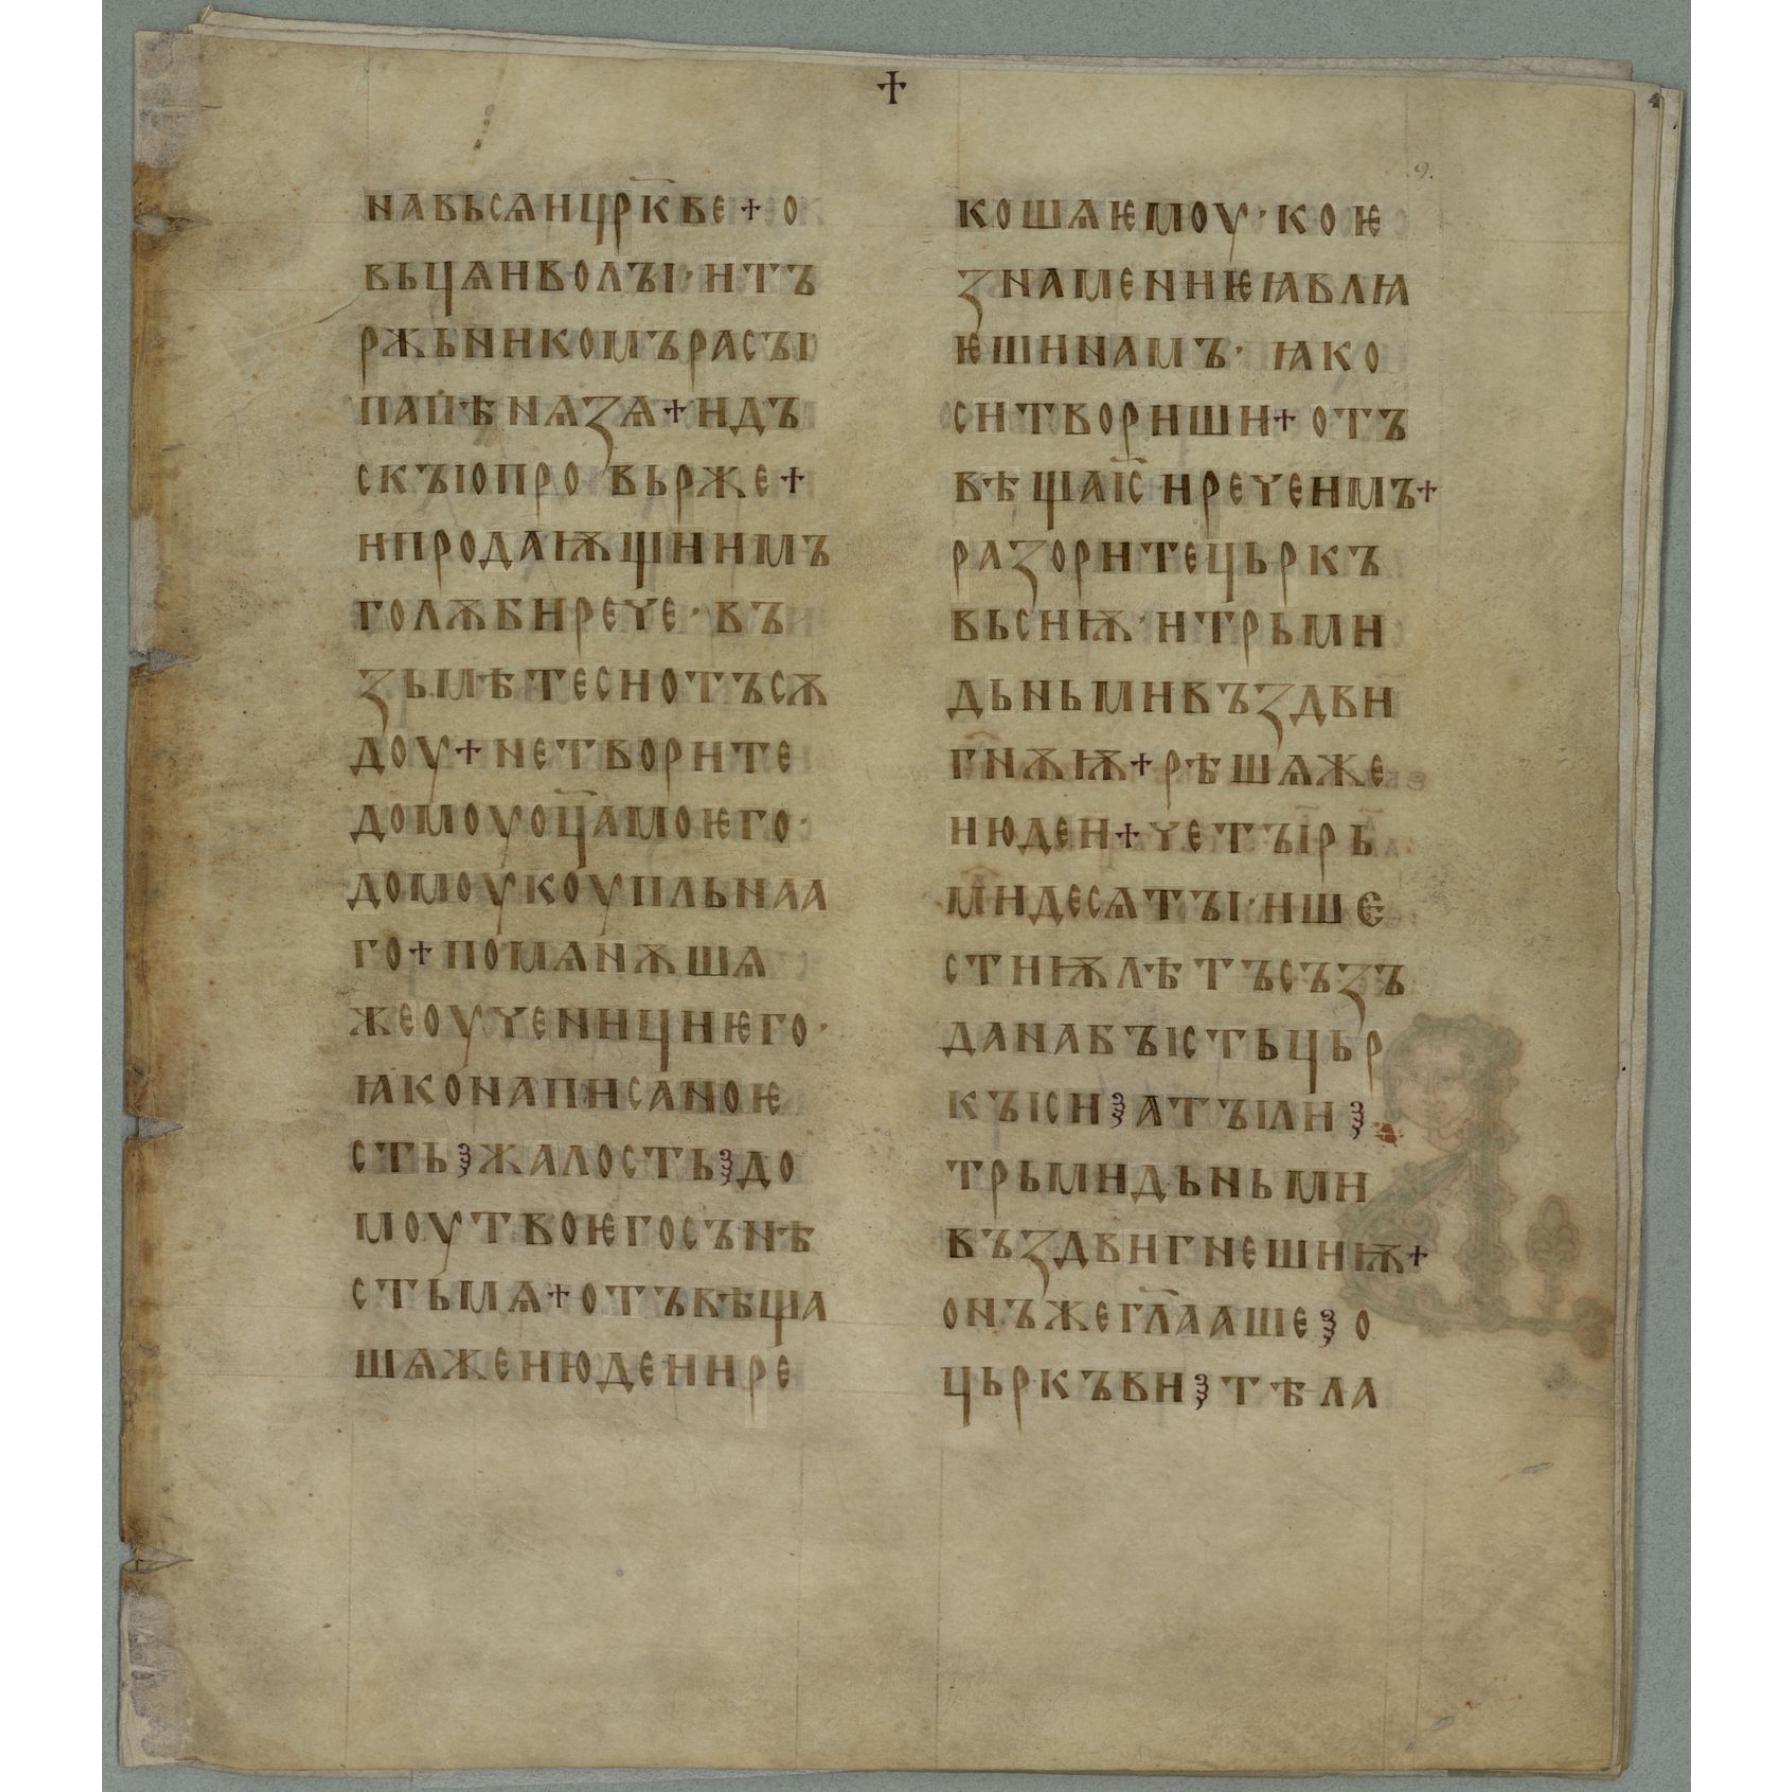 ✝
9.
навьсѧицр҃кве+о
вьцѧиволъі·итъ
ржьникомърасъі
папѣнѧзѧ+идъ
скъіопровьрже+
ипродаѭщиимъ
голѫбирече·въ
зьмѣтесиотъсѫ
доу+нетворите
домуоц҃амоѥго·
домоукоупльнаа
го+помѧнѫшѧ
жеоученициѥго·
ꙗконаписаноѥ
сть⁏жалость⁏до
моутвоѥгосънѣ
стьмѧ+отъвѣща
шѧжеиюдеиире
кошѧѥмоу·коѥ
знамениѥꙗвлꙗ
ѥшинамъ·ꙗко
ситвориши+отъ
вѣщаіс҃иречеимъ+
разоритецьркъ
вьсиѭ·итрьми
дьньмивъздви
гнѫѭ+рѣшѧже
июдеи+четъірь
мидесѧтъі·ише
стиѭлѣтъсъзъ
данабъістьцьр
къіси⁏атъіли⁏
трьмидьньми
въздвигнешиѭ+
онъжегл҃ааше⁏о
цьркъви⁏тѣла